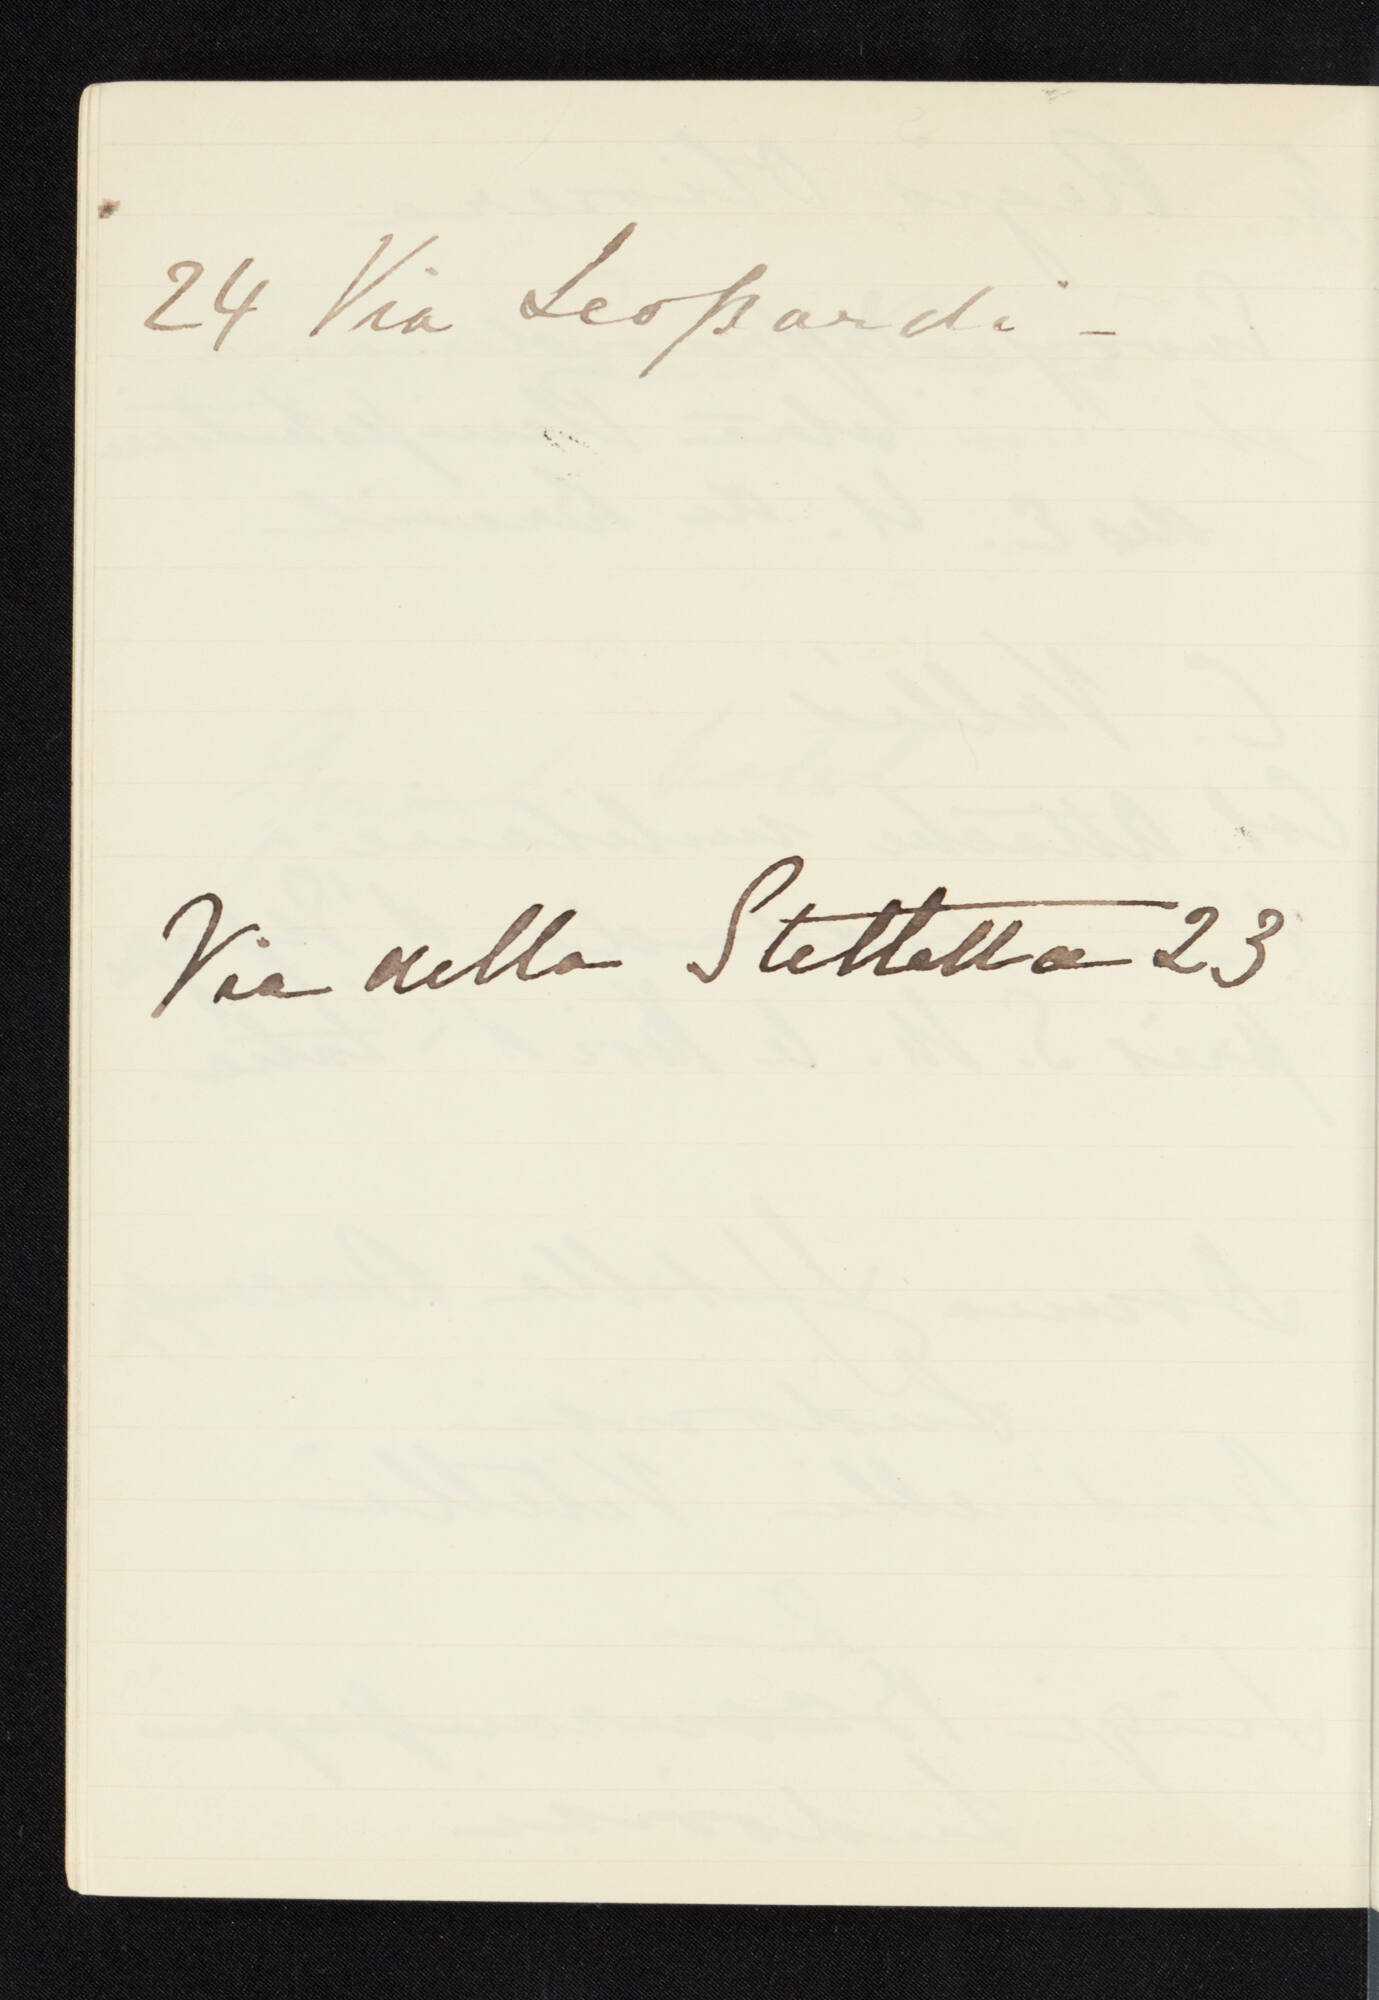 24 Via Leopardi -
Via della Stelletta 23